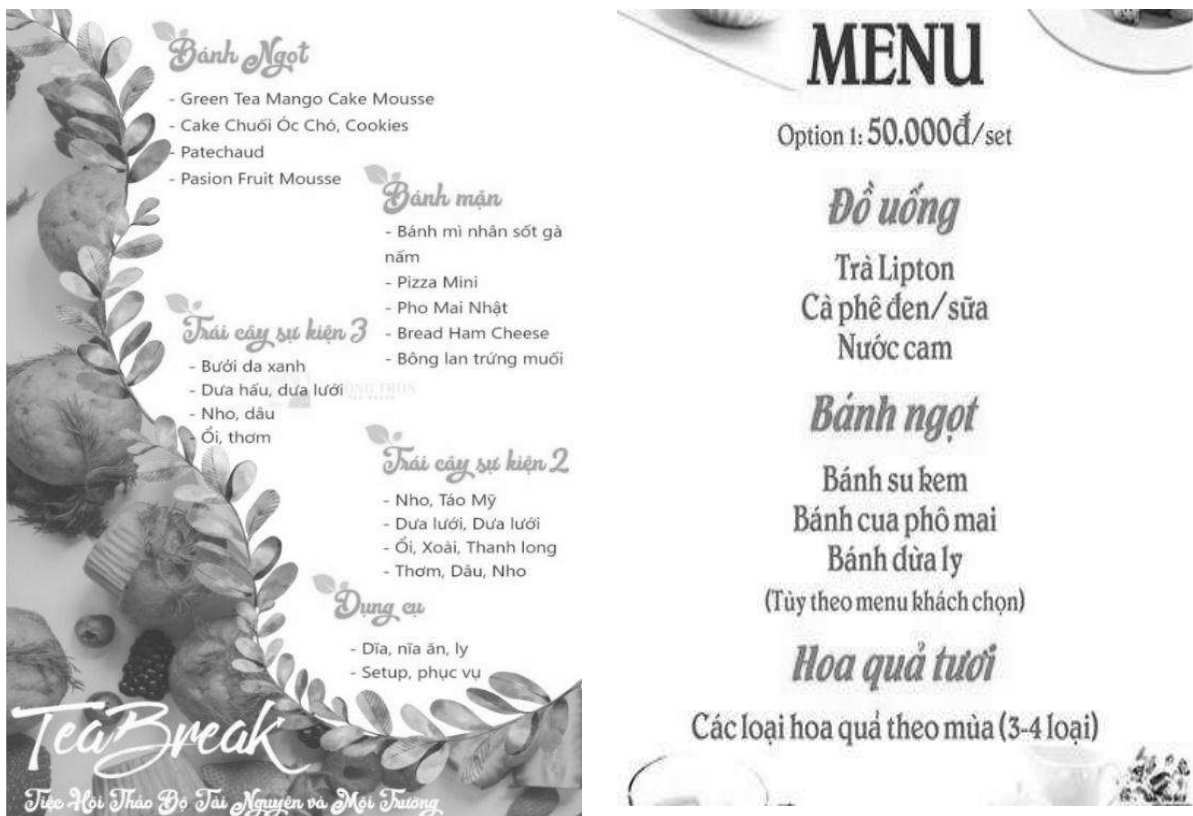 Bánh Ngọt
- Green Tea Mango Cake Mousse
- Cake Chuối Óc Chó, Cookies
- Patechaud
- Pasion Fruit Mousse
Bánh mặn
- Bánh mì nhân sốt gà
nấm
- Pizza Mini
- Pho Mai Nhật
- Bread Ham Cheese
- Bông lan trứng muối
Trái cây sự kiện 3
- Bưởi da xanh
- Dưa hấu, dưa lưới
- Nho, dâu
- Ổi, thơm
Trái cây sự kiện 2
- Nho, Táo Mỹ
- Dưa lưới, Dưa lưới
- Ổi, Xoài, Thanh long
- Thơm, Dâu, Nho
Dụng cụ
- Dĩa, nĩa ăn, ly
- Setup, phục vụ
TeaBreak
Tiệc Hội Thảo Bộ Tài Nguyên và Môi Trường
MENU
Option 1: 50.000đ/set
Đồ uống
Trà Lipton
Cà phê đen/sữa
Nước cam
Bánh ngọt
Bánh su kem
Bánh cua phô mai
Bánh dừa ly
(Tùy theo menu khách chọn)
Hoa quả tươi
Các loại hoa quả theo mùa (3-4 loại)